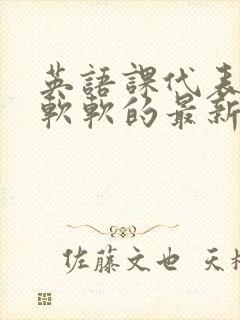 英語課代表
軟軟的最新
佐藤文也 天